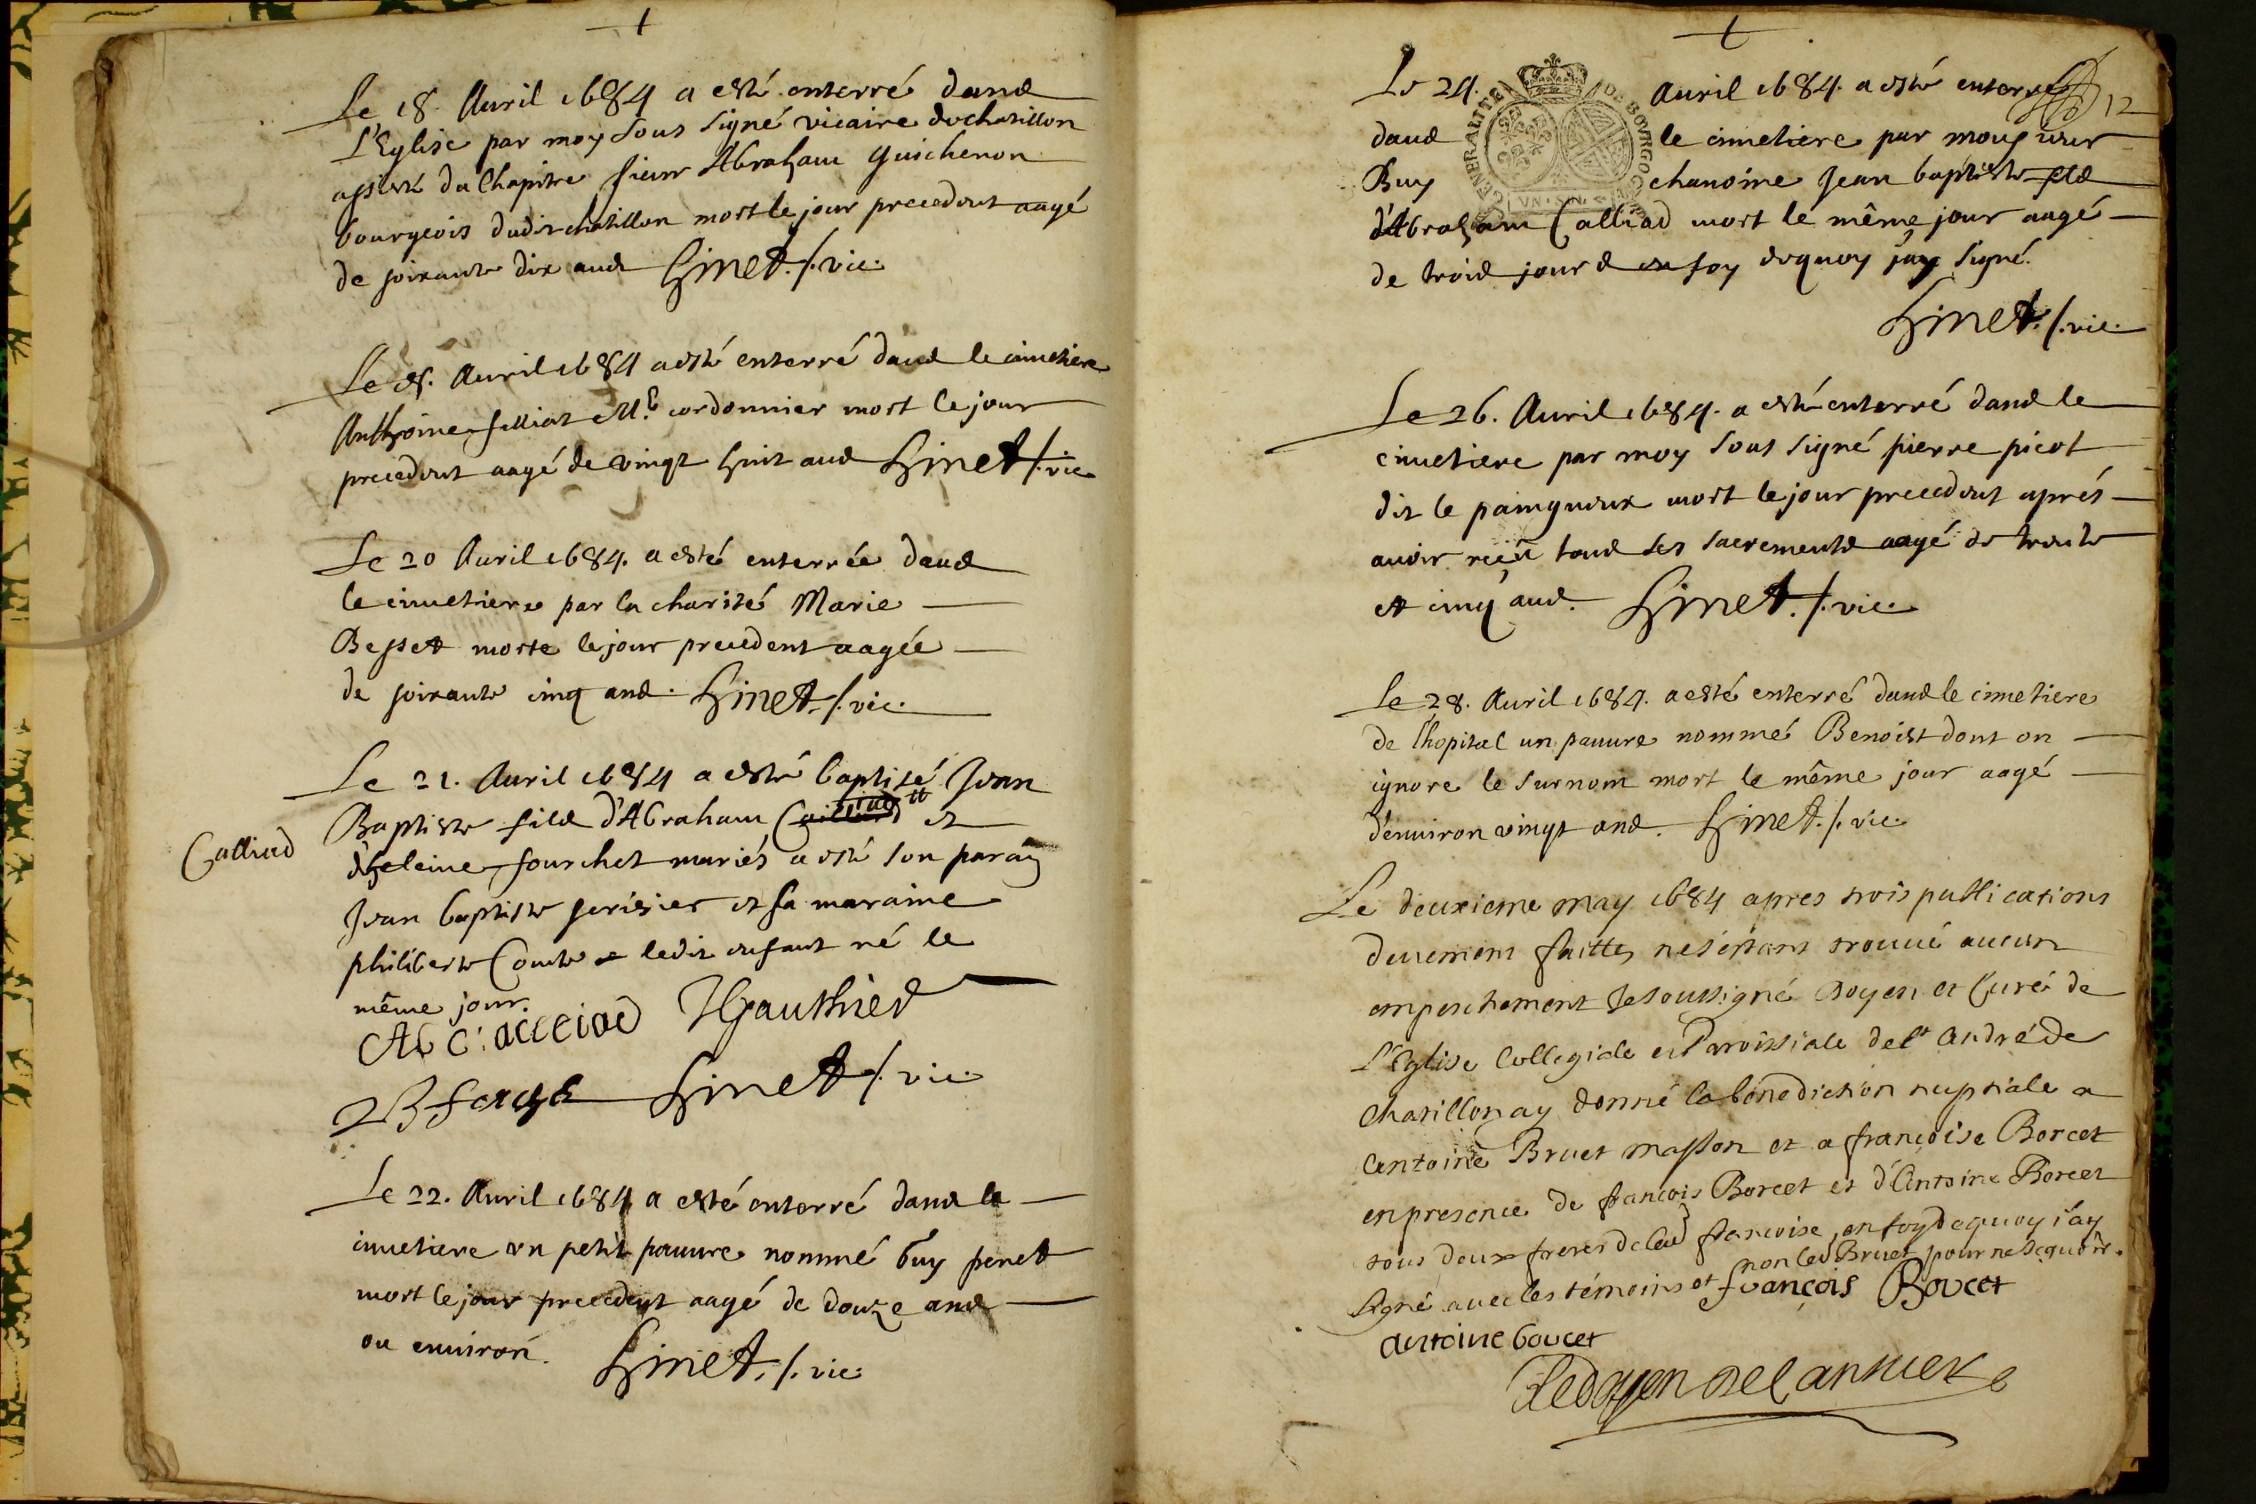 Le 18. Auril 1684 a esté enterré dans
L'Eglise par moy sous signé vicaire de chatillon
assisté du Chapitre sieur Abraham Guichenon
bourgeois dudit chatillon mort le jour precedent aagé
de soixante dix ans Hinet./.vic.
Le 18. Auril 1684 a esté enterré dans le cimetiere
Anthoine filliat M.e cordonnier mort le jour
precedent aagé de vingt huit ans Hinet./.vic
Le 20 Auril 1684. a esté enterrée dans
le cimetiere par la charité Marie
Besset morte le jour precedent aagée
de soixante cinq ans. Hinet./.vic.
Le 21. Auril 1684 a esté baptisé Jean
Baptiste fils d'Abraham et
Calliad
d'heleine fourchet mariés a esté son parain
Jean baptiste serisier et sa maraine
philiberte Comte ledit enfant né le
même jour.
Ab C: alleiad Gauthier
Hinet./.vic.
Le 22. Auril 1684 a esté enterré dans le
cimetiere un petit pauure nommé Guy penet
mort le jour precedent aagé de douze ans
ou enuiron. Hinet./.vic
12
Le 24. Auril 1684. a esté enterré
dans le cimetiere par monsieur
Buy chanoine Jean baptiste fils
GENERALITE DE BOVRGOGNE
d'Abraham Calliad mort le même jour aagé
de trois jours en foy dequoy j'ay signé.
Hinet./.vic.
Le 26. Auril 1684. a esté enterré dans le
cimetiere par moy sous signé pierre picot
dit le mort le jour precedent aprés
auoir reçu tous ses sacrements aagé de trente
et cinq ans. Hinet./.vic.
Le 28. Auril 1684. a esté enterré dans le cimetiere
de l'hopital un pauure nommé Benoist dont on
ignore le surnom mort le même jour aagé
d'enuiron vingt ans. Hinet./.vic.
Le deuxieme may 1684 apres trois publications
deuement faittes ne s'estant trouué aucun
empeschement Je soussigné Doyen et Curé de
L'Eglise Collegiale et Paroissiale de St André de
Chatillon ay donné la benediction nuptiale a
Antoine Bruet masson et a françoise Borcet
en presence de françois Borcet et d'Antoine Borcet
tous deux freres de lad françoise, en foy de quoy i'ay
signé auec les témoins et non led Bruet pour ne sçauoir.
françois Borcet
antoine borcet
Ledoyen